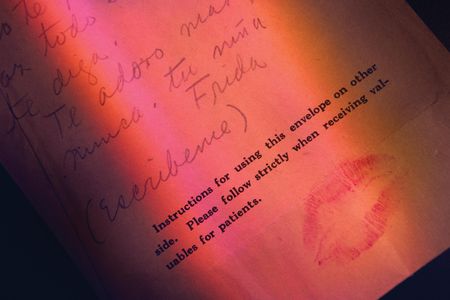 te
todo
te diga,
Te adoro mas
nunca, tu niña
Frida
(Escribeme)
Instructions for using this envelope on other
side. Please follow strictly when receiving val-
uables for patients.